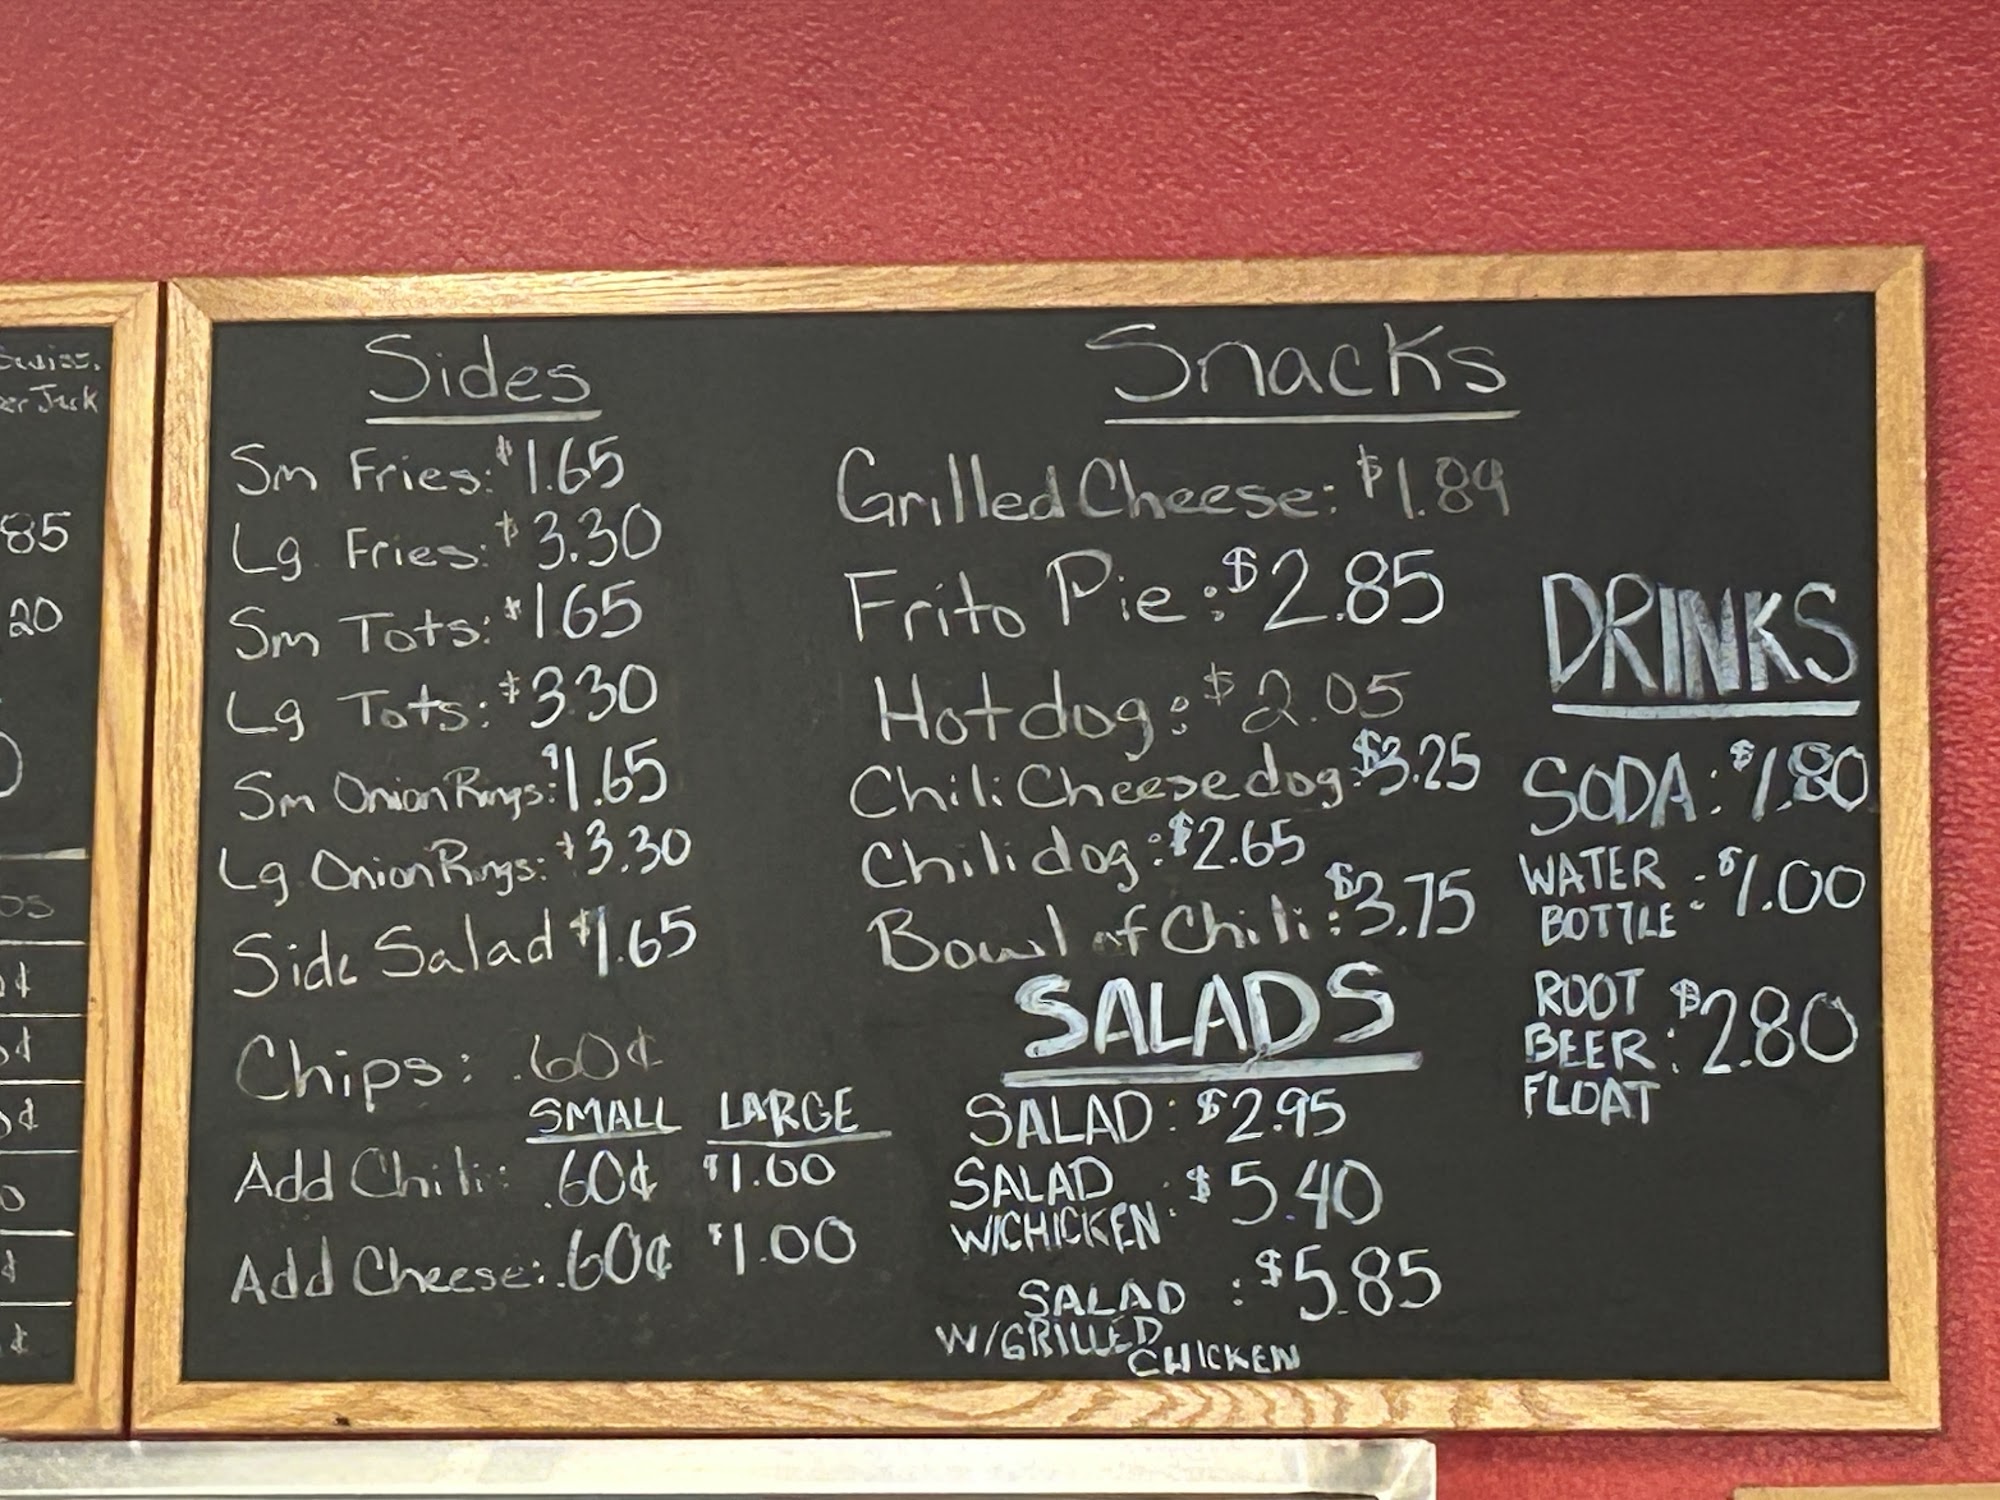 Swiss,
Jack
85
20
Sides
Sm Fries: $1.65
Lg Fries: $3.30
Sm Tots: $1.65
Lg Tots: $3.30
Sm Onion Rings: $1.65
Lg Onion Rings: $3.30
Side Salad $1.65
Chips: .60¢
SMALL LARGE
Add Chili: .60¢ $1.00
Add Cheese: .60¢ $1.00
Snacks
Grilled Cheese: $1.89
Frito Pie: $2.85
Hotdog: $2.05
Chili Cheesedog: $3.25
Chilidog: $2.65
Bowl of Chili: $3.75
SALADS
SALAD: $2.95
SALAD
W/CHICKEN : $5.40
SALAD : $5.85
W/GRILLED
CHICKEN
DRINKS
SODA: $1.80
WATER
BOTTLE : $1.00
ROOT
BEER : $2.80
FLOAT